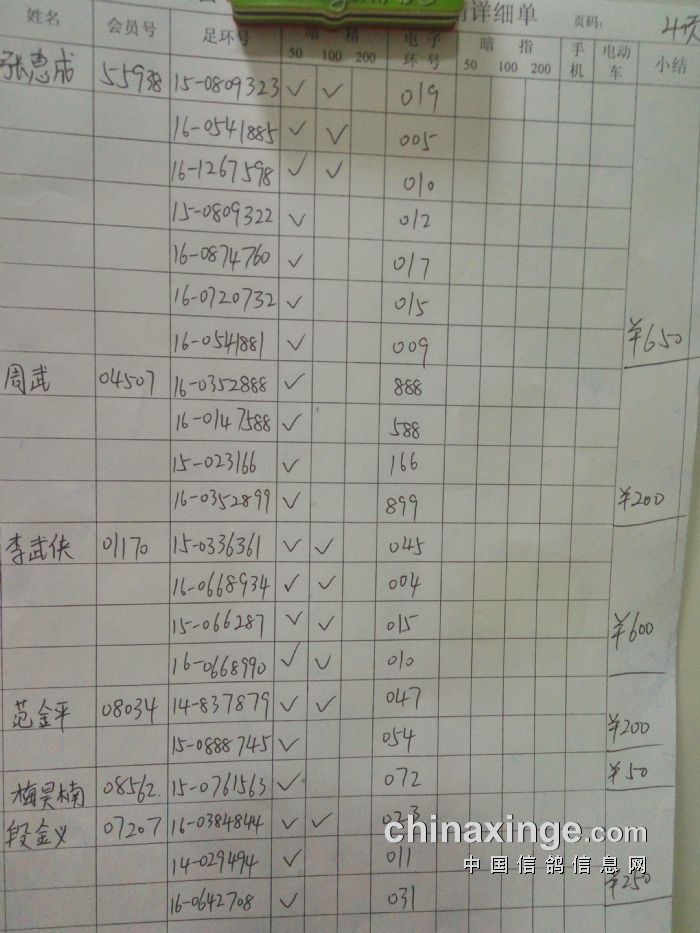 详细单 页码: 4页
姓名 会员号 足环号 暗 精 电子环号 暗 指 手机 电动车 小结
50 100 200 50 100 200
张惠成 55938 15-0809323 ✓ ✓ 019
16-0541885 ✓ ✓ 005
16-1267598 ✓ ✓ 010
15-0809322 ✓ 012
16-0874760 ✓ 017
16-0720732 ✓ 015
16-0541881 ✓ 009 ¥650
周武 04507 16-0352888 ✓ 888
16-0147588 ✓ 588
15-023166 ✓ 166
16-0352899 ✓ 899 ¥200
李武侠 01170 15-0336361 ✓ ✓ 045
16-0668934 ✓ ✓ 004
15-066287 ✓ ✓ 015
16-0668990 ✓ ✓ 010 ¥600
范金平 08034 14-837879 ✓ ✓ 047
15-0888745 ✓ 054 ¥200
梅昊楠 08562 15-0761563 ✓ 072 ¥50
段金义 07207 16-0384844 ✓ ✓ 023
14-029494 ✓ 011
16-0642708 ✓ 031 ¥250
chinaxinge.com
中国信鸽信息网